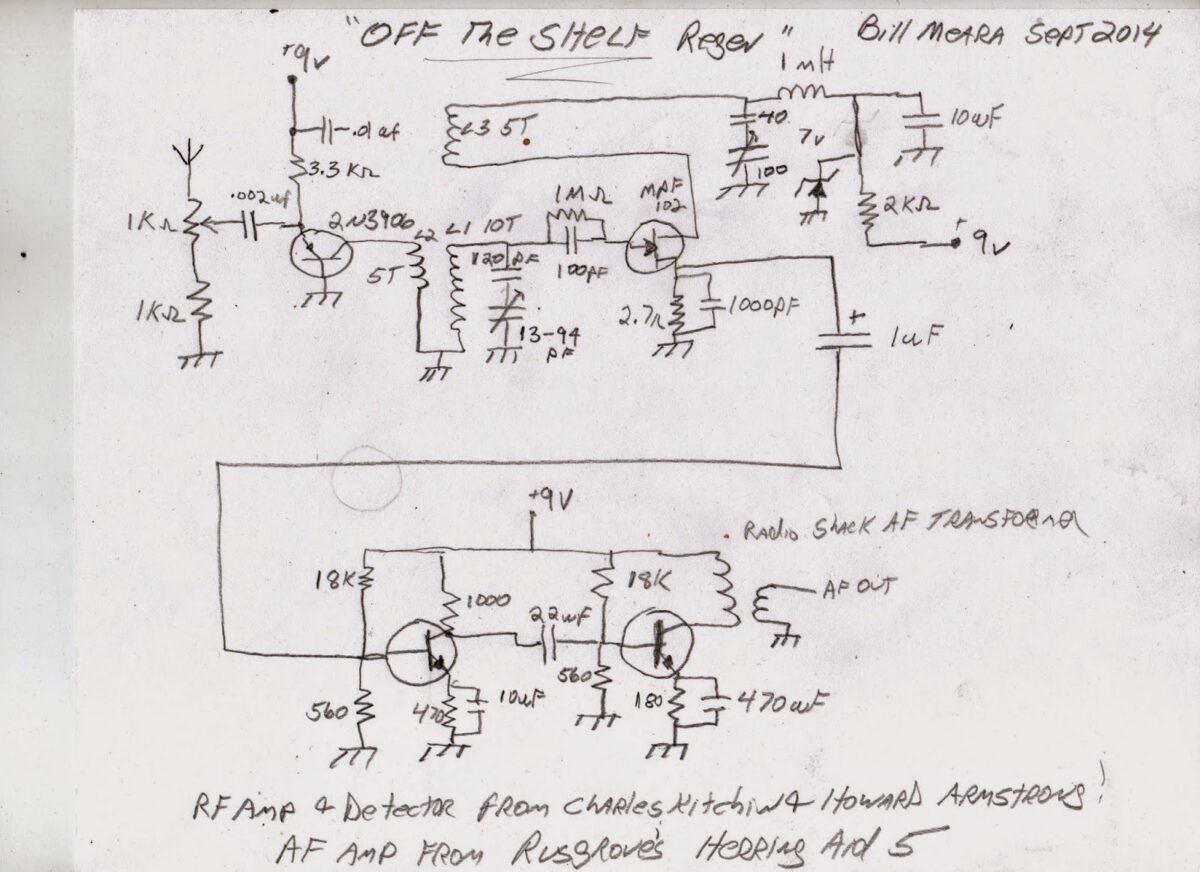 "OFF The SHELF Regen" Bill MEARA SEPT 2014
+9v
1 mH
L3 5T
.01 uf
40
7v
10uF
3.3 KΩ
100
.002uf
1MΩ
MPF
102
1KΩ
2N3906
L2
L1 10T
2KΩ
+9v
5T
120 pF
100pF
1KΩ
2.7Ω
1000pF
13-94
pF
+
1uF
+9V
RADIO SHACK AF TRANSFORMER
18K
1000
18K
AF OUT
22uF
560
560
470
10uF
180
470uF
RF AMP & Detector from Charles Kitchin & HOWARD ARMSTRONG!
AF AMP FROM Rusgrove's HERRING Aid 5